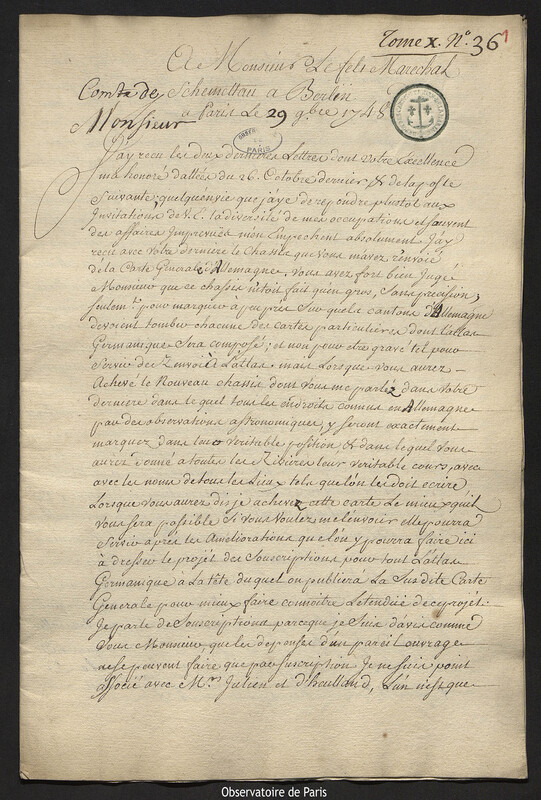 Tome X. N.º 36 1
A Monsieur Le felt Marechal
Comte de Schemettau a Berlin
a Paris Le 29 9.bre 1748
Monsieur
J'ay receu les deux dernieres Lettres dont votre Excellence
ma honoré dattées du 26. Octobre dernier & de la poste
Suivante, quelqu'envie que j'aye de repondre plustot aux
Invitations de V.E. la diversité de mes occupations et souvent
des affaires Imprevuës m'en Empechent absolument. J'ay
recû avec votre derniere le Chassis que vous m'avez renvoié
de la Carte Generale d'Allemagne, vous avez fort bien Jugé
Monsieur que ce chassis n'etoit fait qu'en gros, sans precision,
seulem.t pour marquer à peu pres sur quels cantons d'Allemagne
devroient tomber chacune des cartes particulieres dont l'atlas
Germanique sera composé; et non pour etre gravé tel pour
Servir de Renvoi à L'atlas. mais Lorsque vous aurez
Achevé le Nouveau chassis dont vous me parlez dans votre
derniere dans le quel tous les endroits connus en Allemagne
par des observations astronomiques, y seront exactement
marquez dans leur veritable position, & dans lequel vous
aurez donné a toutes les Rivieres leur veritable cours, avec
avec les noms de tous les Lieux tels que l'on les doit ecrire
Lorsque vous aurez dis je achevez cette carte Le mieux qu'il
vous sera possible si vous voulez me l'envoier elle pourra
Servir apres les Ameliorations que l'on y pourra faire ici
à dresser le projet des Souscriptions pour tout L'atlas
Germanique a la tête du quel on publiera La Susdite Carte
Generale pour mieux faire connoitre L'etenduë de ce projet.
Je parle de Souscriptions parceque je suis d'avis comme
Vous Monsieur, que les depenses d'un pareil ouvrage
ne se peuvent faire que par suscription Je ne suis point
associé avec M.rs Julien et d'heulland, L'un n'est que
OBSERV. DE PARIS
Observatoire de Paris